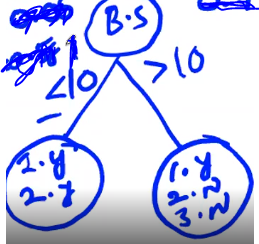 B.S
≤10
>10
1.Y
2.Y
1.Y
2.N
3.N